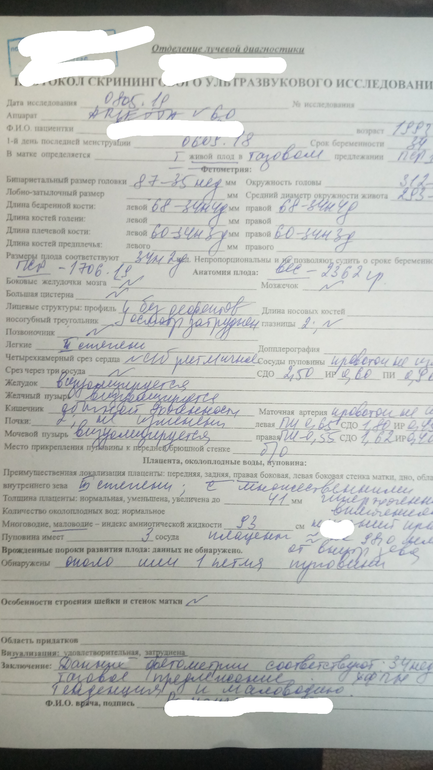 Отделение лучевой диагностики
ПРОТОКОЛ СКРИНИНГОВОГО УЛЬТРАЗВУКОВОГО ИССЛЕДОВАНИ
Дата исследования 0805.19 № исследования
Аппарат
Ф.И.О. пациентки возраст
1-й день последней менструации 0605.18 Срок беременности 34
В матке определяется I живой плод в тазовом предлежании
Фетометрия:
Бипариетальный размер головки 87-35 нед мм Окружность головы 312
Лобно-затылочный размер мм Средний диаметр окружности живота
Длина бедренной кости: левой 68-34н4д мм правой 68-34н4д
Длина костей голени: левой мм правой
Длина плечевой кости: левой 60-34н3д мм правой 60-34н3д
Длина костей предплечья: левого мм правого
Размеры плода соответствуют 34н2д Непропорциональны и не позволяют судить о сроке беременнос
ПСР - 1706.19 Анатомия плода: вес - 2362 гр.
Боковые желудочки мозга N Мозжечок N
Большая цистерна N
Лицевые структуры: профиль Ч без дефектов Длина носовых костей
носогубный треугольник осмотр затруднен глазницы 2; N
Позвоночник N
Легкие II степени Допплерография
Четырехкамерный срез сердца N с/б ритмичное Сосуды пуповины кровоток не
Срез через три сосуда N СДО 2,50 ИР 0,60 ПИ
Желудок визуализируется
Желчный пузырь визуализируется
Кишечник Маточная артерия кровоток не
Почки: не изменены левая ПИ-0,65 СДО 1,80 ИР
Мочевой пузырь визуализируется правая ПИ-0,55 СДО 1,62 ИР
Место прикрепления пуповины к передней брюшной стенке б/о
Плацента, околоплодные воды, пуповина:
Преимущественная локализация плаценты: передняя, задняя, правая боковая, левая боковая стенка матки, дно, обла
внутреннего зева II степени; с множественными
Толщина плаценты: нормальная, уменьшена, увеличена до 41 мм
Количество околоплодных вод: нормальное
Многоводие, маловодие – индекс амниотической жидкости 93 см
Пуповина имеет 3 сосуда плаценты 98,0 мм
Врожденные пороки развития плода: данных не обнаружено. от внутр зева
Обнаружены около шеи 1 петля пуповины
Особенности строения шейки и стенок матки N
Область придатков
Визуализация: удовлетворительная, затруднена
Заключение: Данные фетометрии соответствуют 34 нед
Тазовое предлежание. ХФПН
Тенденция к маловодию.
Ф.И.О. врача, подпись